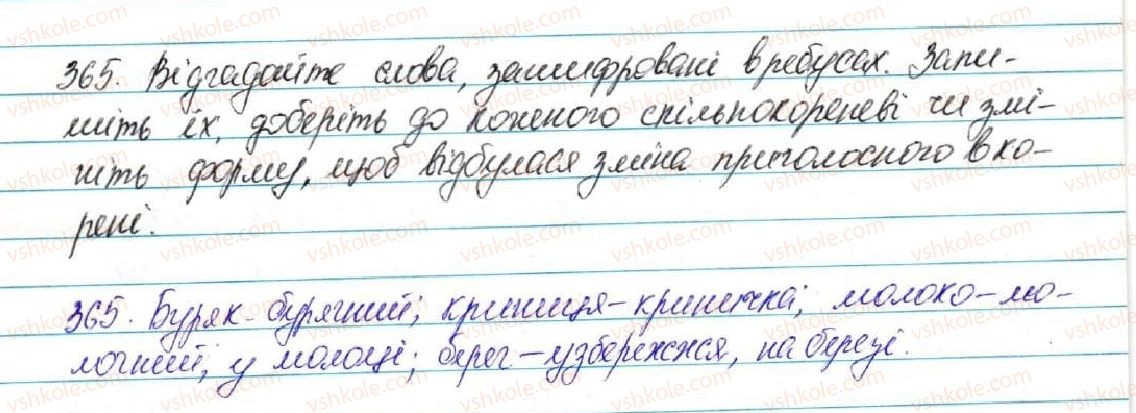 365. Відгадайте слова, зашифровані в ребусах. Запи-
шіть їх, доберіть до кожного спільнокореневі чи змі-
ніть форму, щоб відбулася зміна приголосного в ко-
рені.
365. Буряк-бурячний; криниця-криничка; молоко-мо-
лочний, у молоці; берег-узбережжя, на березі.